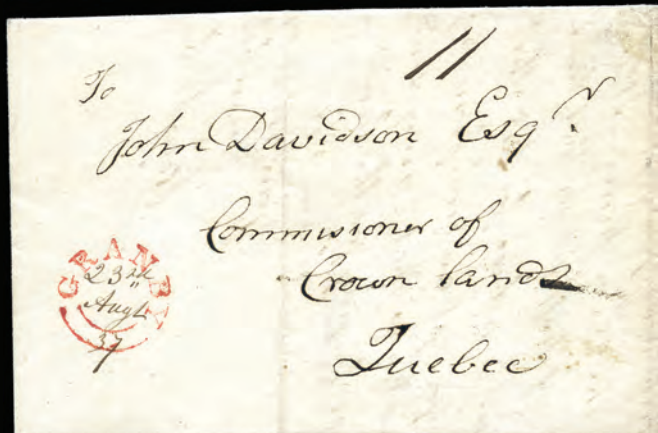 11
To
John Davidson Esqr.
Commisioner of
Crown lands
Quebec
GRANBY
23rd
Augt
37